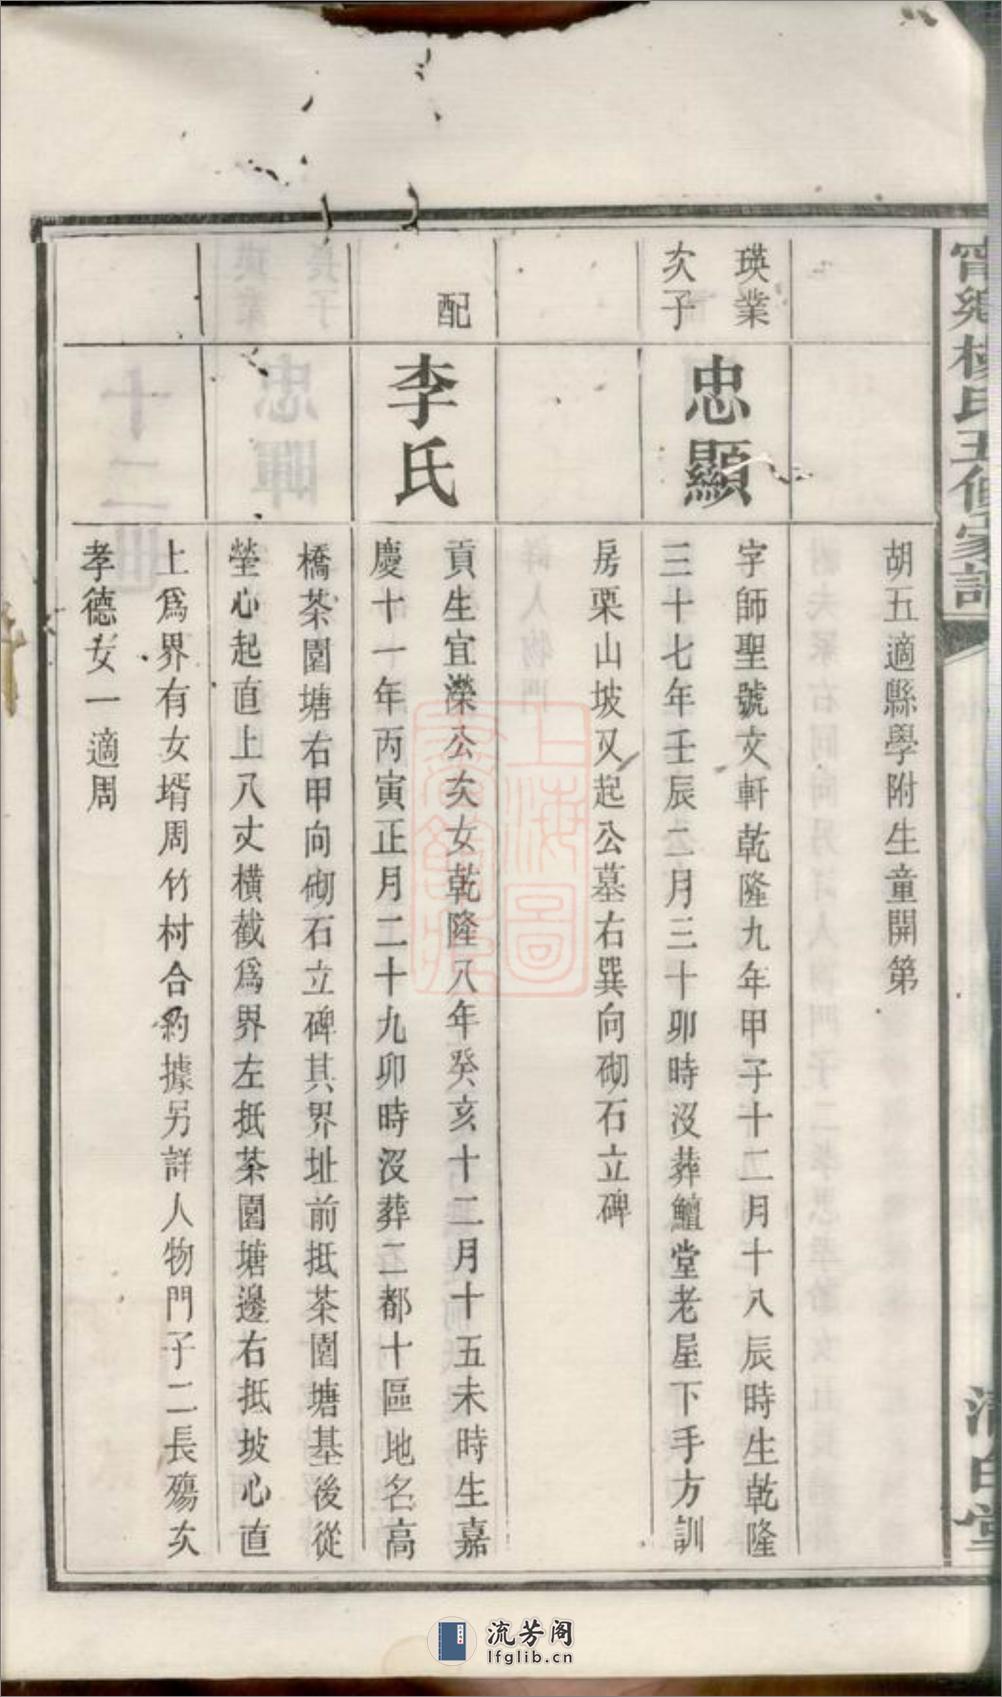 甯鄉楊氏五修家譜
清白堂
胡五適縣學附生童開第
瑛業
次子
忠顯
字師聖號文軒乾隆九年甲子十二月十八辰時生乾隆
三十七年壬辰二月三十卯時沒葬鱣堂老屋下手方訓
房栗山坡又起公墓右巽向砌石立碑
配
李氏
貢生宜濚公次女乾隆八年癸亥十二月十五未時生嘉
慶十一年丙寅正月二十九卯時沒葬二都十區地名高
橋茶園塘右甲向砌石立碑其界址前抵茶園塘基後從
塋心起直上八丈橫截爲界左抵茶園塘邊右抵坡心直
上爲界有女壻周竹村合約據另詳人物門子二長殤次
孝德女一適周
上海圖書館藏
流芳阁
lfglib.cn